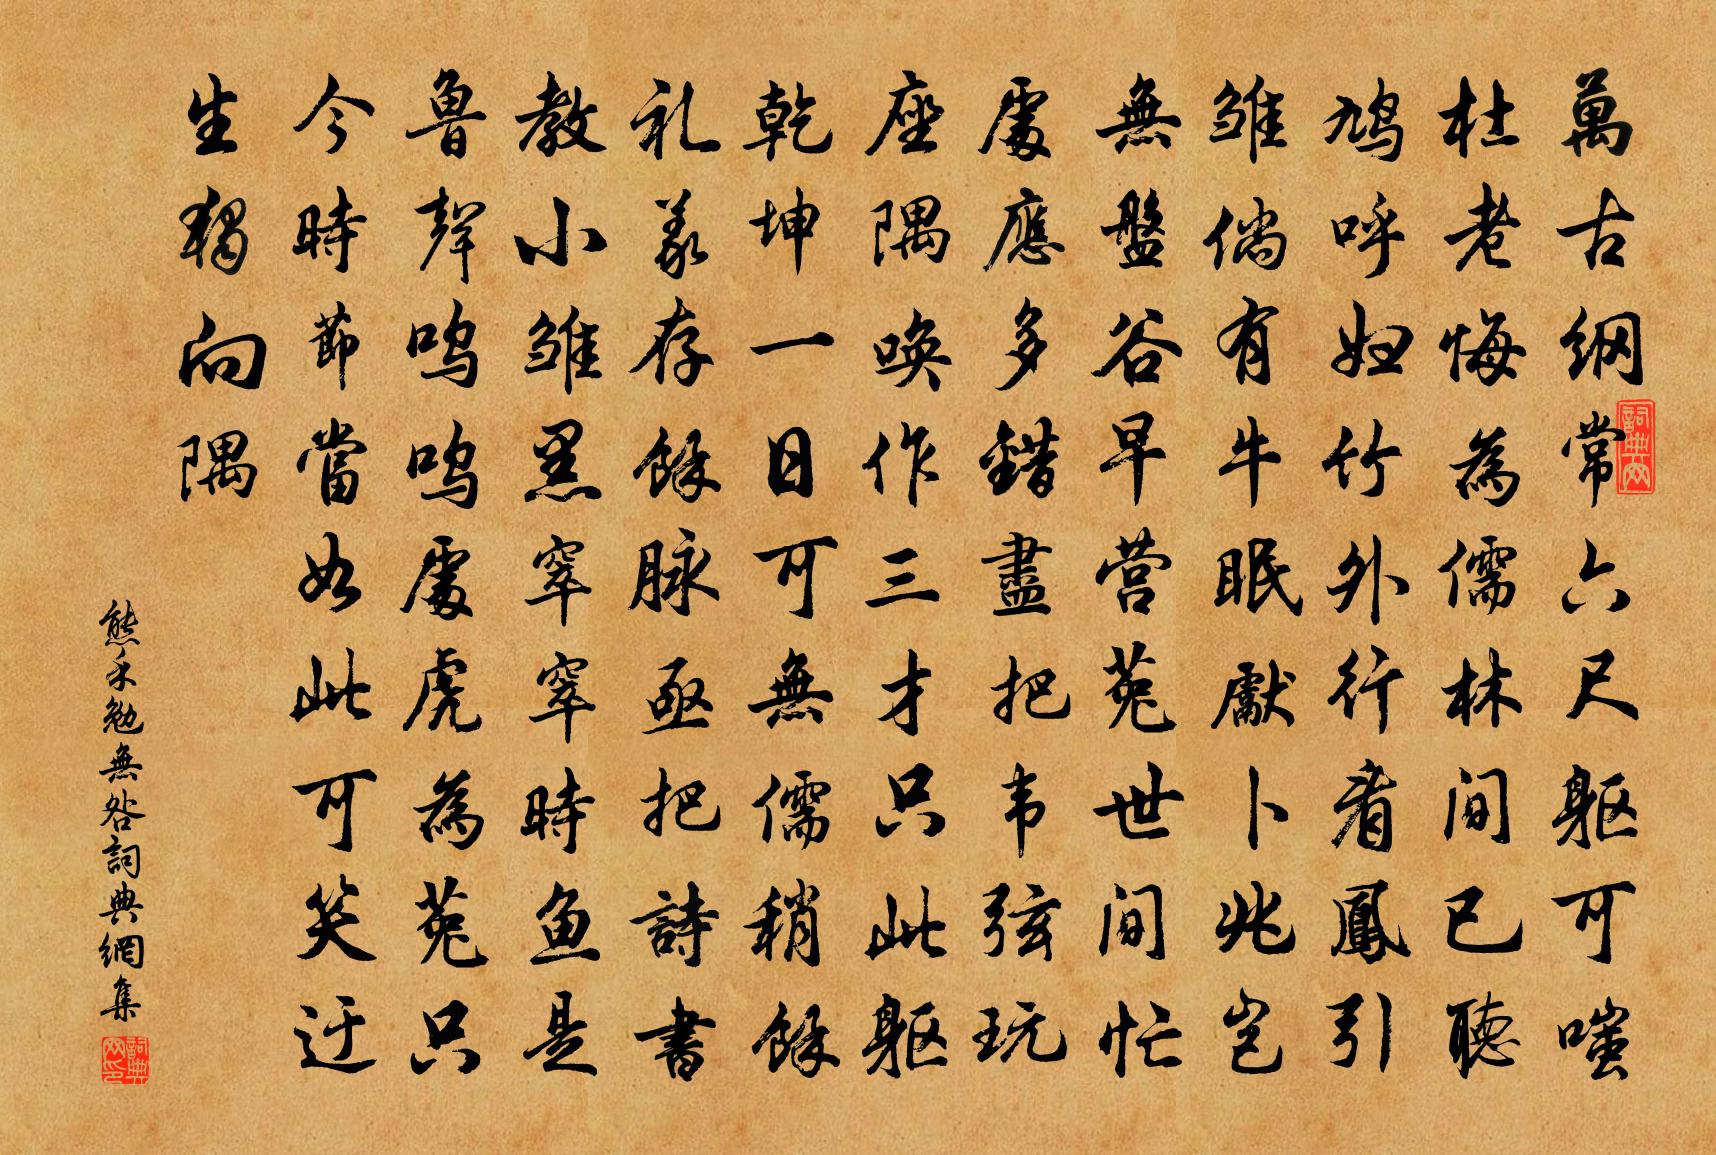 萬古綱常六尺軀可嗤
杜老悔為儒林間已聽
鳩呼婦竹外行看鳳引
雏倘有牛眠獻卜兆豈
無盤谷早营菟世間忙
處應多錯盡把韦弦玩
座隅唤作三才只此軀
乾坤一日可無儒稍餘
礼義存餘脉亟把詩書
教小雏黑窣窣時鱼是
魯聲呜呜處虎為菟只
今時節當如此可笑迂
生獨向隅
熊禾勉無咎詞典網集
詞典网
詞典网印